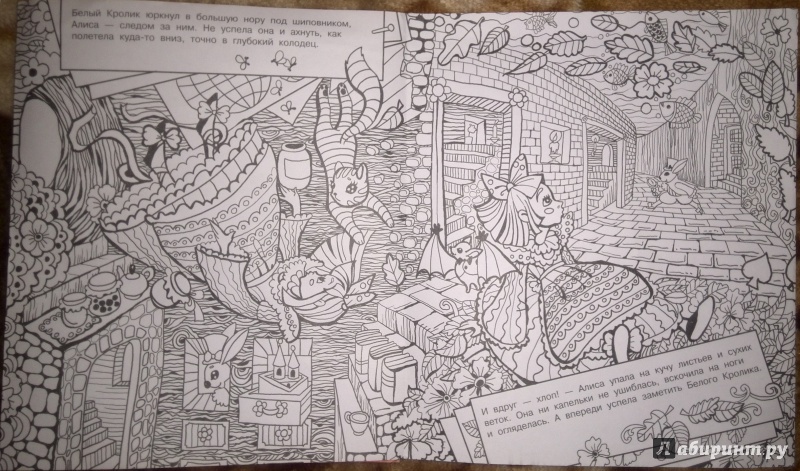 Белый Кролик юркнул в большую нору под шиповником,
Алиса — следом за ним. Не успела она и ахнуть, как
полетела куда-то вниз, точно в глубокий колодец.
И вдруг — хлоп! — Алиса упала на кучу листьев и сухих
веток. Она ни капельки не ушиблась, вскочила на ноги
и огляделась. А впереди успела заметить Белого Кролика.
Лабиринт.ру